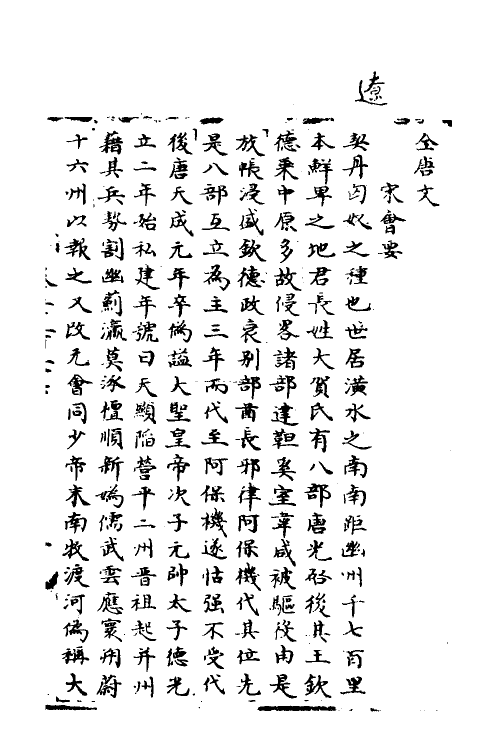 遼
全唐文
宋會要
契丹匈奴之種也世居潢水之南南距幽州千七百里
本鮮卑之地君長姓大賀氏有八部唐光啓後其王欽
德乘中原多故侵畧諸部達靼奚室韋咸被驅役由是
族帳浸盛欽德政衰别部酋長邪律阿保機代其位先
是八部互立為主三年而代至阿保機遂怙强不受代
後唐天成元年卒偽謚大聖皇帝次子元帥太子德光
立二年始私建年號曰天顯陷營平二州晋祖起并州
藉其兵勢割幽薊瀛莫涿檀順新媯儒武雲應寰朔蔚
十六州以報之又改元會同少帝末南牧渡河僞稱大